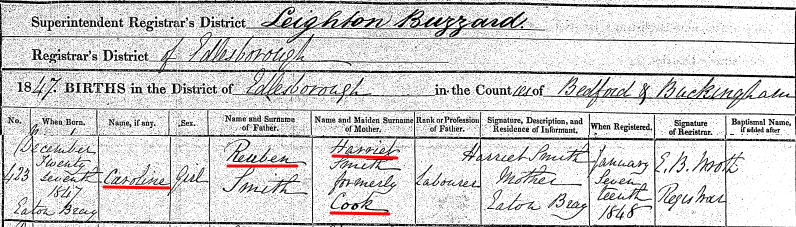 Superintendent Registrar's District Leighton Buzzard.
Registrar's District of Edlesborough
1847. BIRTHS in the District of Edlesborough in the Counties of Bedford & Buckingham
No. When Born. Name, if any. Sex. Name and Surname of Father. Name and Maiden Surname of Mother. Rank or Profession of Father. Signature, Description, and Residence of Informant. When Registered. Signature of Registrar. Baptismal Name, if added after
423 December Twenty seventh 1847 Eaton Bray Caroline Girl Reuben Smith Harriet Smith formerly Cook Labourer Harriet Smith Mother Eaton Bray January Seventeenth 1848 E.B. Registrar